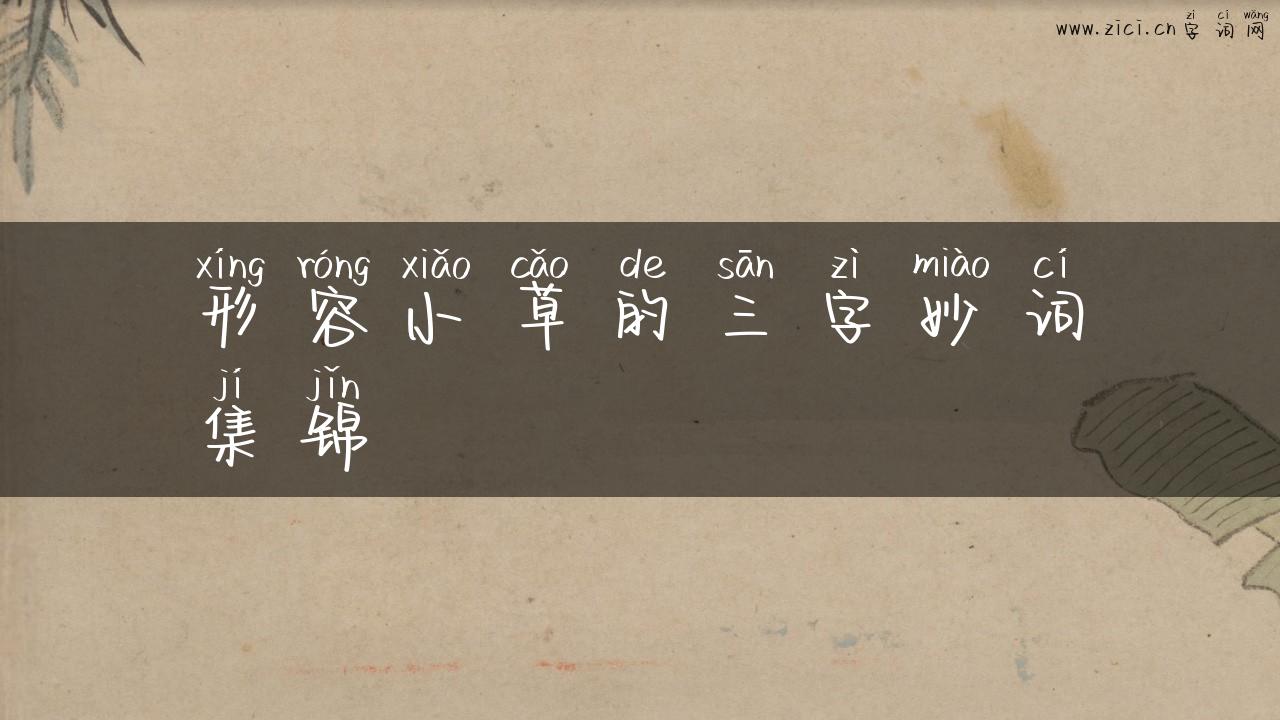 zì cí wǎng
www.zici.cn 字词网
xíng róng xiǎo cǎo de sān zì miào cí
形容小草的三字妙词
jí jǐn
集锦